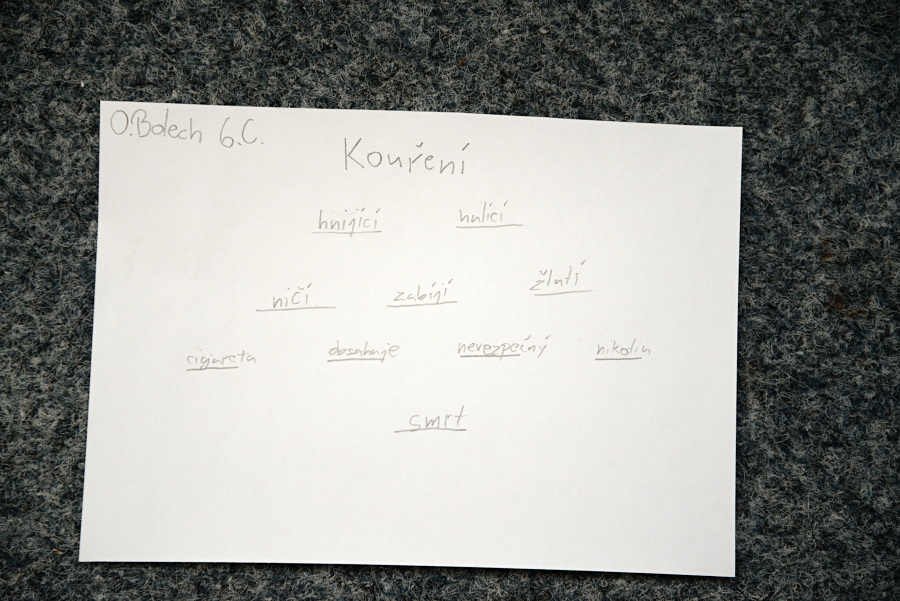 O.Bolech 6.C.
Kouření
hnijící hulící
ničí zabíjí žlutí
cigareta obsahuje nevezpečný nikotin
smrt